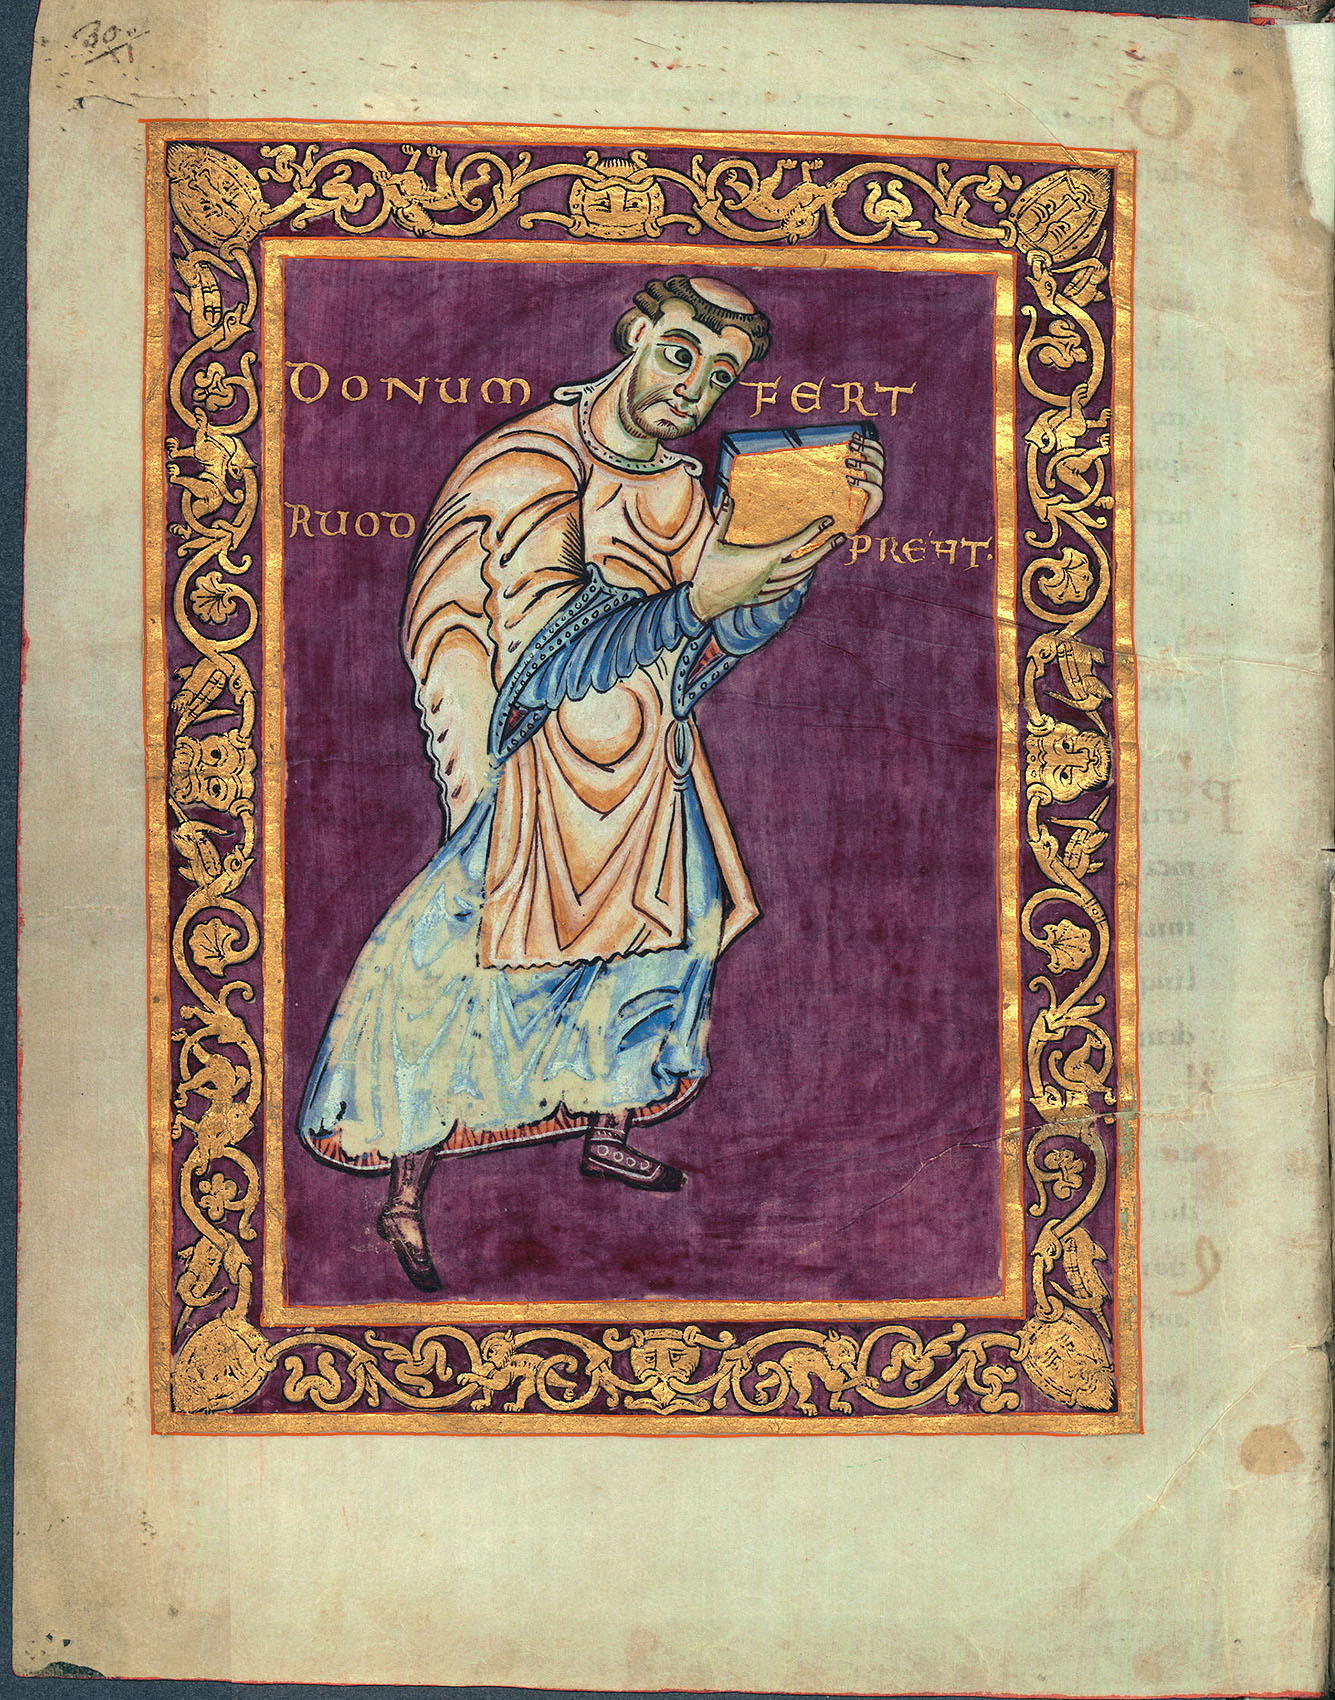 30
XI
DONUM FERT
RUOD PREHT.